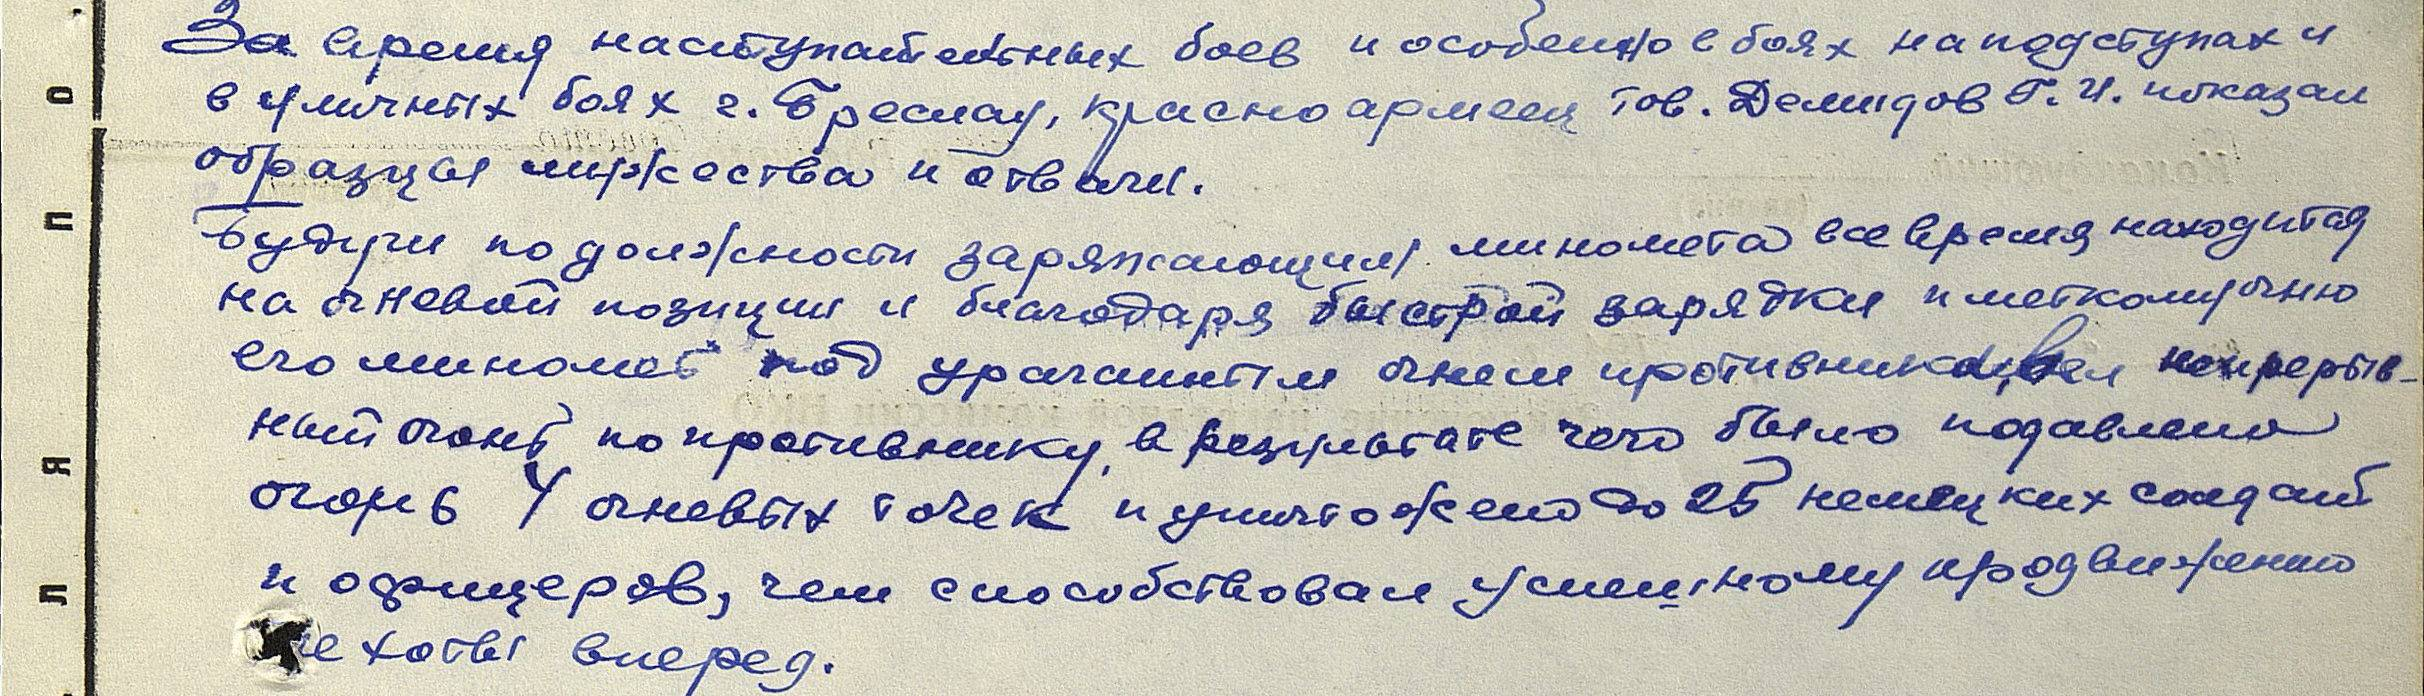 За время наступательных боев и особенно в боях на подступах и
в уличных боях г. Бреслау, красноармеец тов. Демидов Г. И. показал
образцы мужества и отваги.
Будучи по должности заряжающим миномета все время находится
на огневой позиции и благодаря быстрой зарядки и меткому огню
его миномет под ураганным огнем противника, вел непрерыв-
ный огонь по противнику, в результате чего было подавлено
огонь 4 огневых точек и уничтожено до 25 немецких солдат
и офицеров, чем способствовал успешному продвижению
пехоты вперед.
О
П
Я
Л